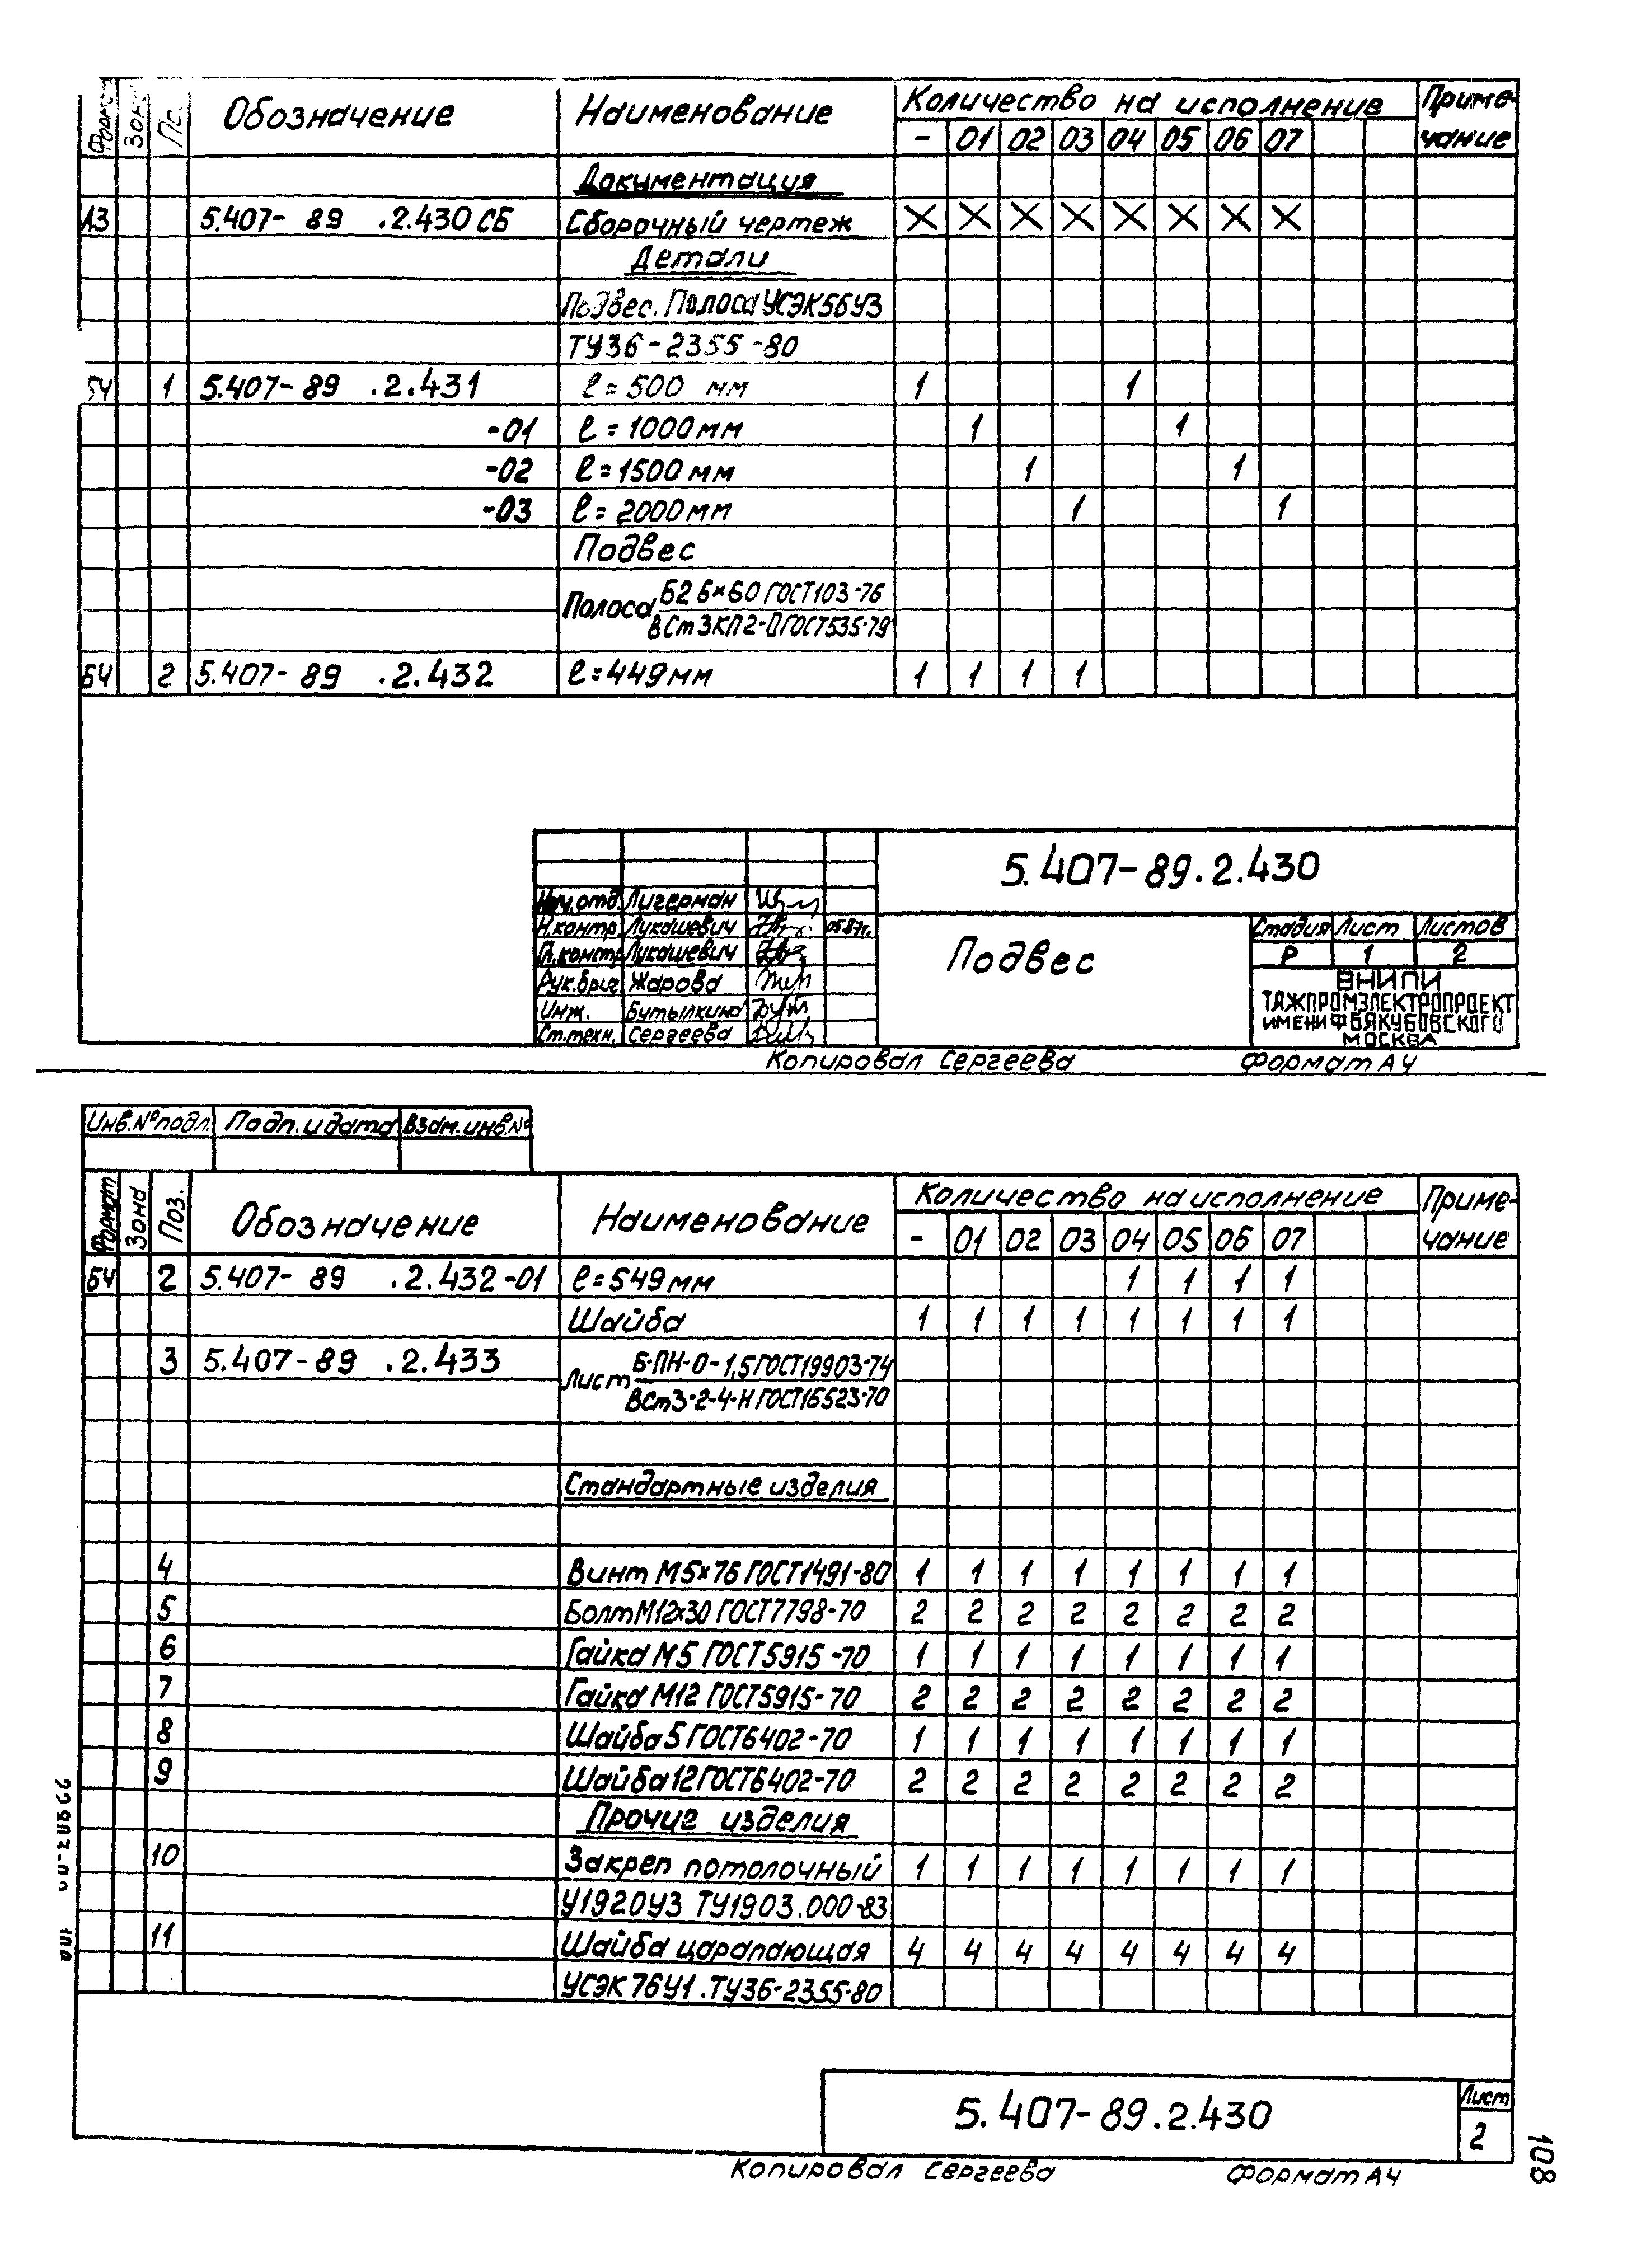 Формат Зона Поз. Обозначение Наименование Количество на исполнение Приме-
- 01 02 03 04 05 06 07 чание
Документация
А3 5.407- 89 .2.430 СБ Сборочный чертеж X X X X X X X X
Детали
Подвес. Полоса УСЭК56У3
ТУ36-2355-80
БЧ 1 5.407- 89 .2.431 ℓ=500 мм 1 1
-01 ℓ=1000мм 1 1
-02 ℓ=1500мм 1 1
-03 ℓ=2000мм 1 1
Подвес
Полоса Б2 6×60 ГОСТ103-76
ВСт3КП2-П ГОСТ535-79
БЧ 2 5.407- 89 .2.432 ℓ=449мм 1 1 1 1
5.407-89.2.430
Нач.отд. Лигерман
Н.контр. Лукашевич 0587г.
Гл.констр Лукашевич
Рук.бриг. Жарова
Инж. Бутылкина
Ст.техн. Сергеева
Подвес
Стадия Лист Листов
Р 1 2
ВНИПИ
ТЯЖПРОМЭЛЕКТРОПРОЕКТ
ИМЕНИ Ф БЯКУБОВСКОГО
МОСКВА
Копировал Сергеева Формат А4
Инв.№подл. Подп.и дата Взам.инв.№
Формат Зона Поз. Обозначение Наименование Количество на исполнение Приме-
- 01 02 03 04 05 06 07 чание
БЧ 2 5.407- 89 .2.432-01 ℓ=549мм 1 1 1 1
Шайба 1 1 1 1 1 1 1 1
3 5.407-89 .2.433 Лист Б-ПН-О-1,5ГОСТ19903-74
ВСт3-2-4-Н ГОСТ16523-70
Стандартные изделия
4 Винт М5×76 ГОСТ1491-80 1 1 1 1 1 1 1 1
5 Болт М12×30 ГОСТ7798-70 2 2 2 2 2 2 2 2
6 Гайка М5 ГОСТ5915-70 1 1 1 1 1 1 1 1
7 Гайка М12 ГОСТ5915-70 2 2 2 2 2 2 2 2
8 Шайба 5 ГОСТ6402-70 1 1 1 1 1 1 1 1
9 Шайба 12 ГОСТ6402-70 2 2 2 2 2 2 2 2
Прочие изделия
10 Закреп потолочный 1 1 1 1 1 1 1 1
У1920У3 ТУ1903.000-83
11 Шайба царапающая 4 4 4 4 4 4 4 4
УСЭК76У1.ТУ36-2355-80
5.407-89.2.430
Лист
2
Копировал Сергеева Формат А4
108